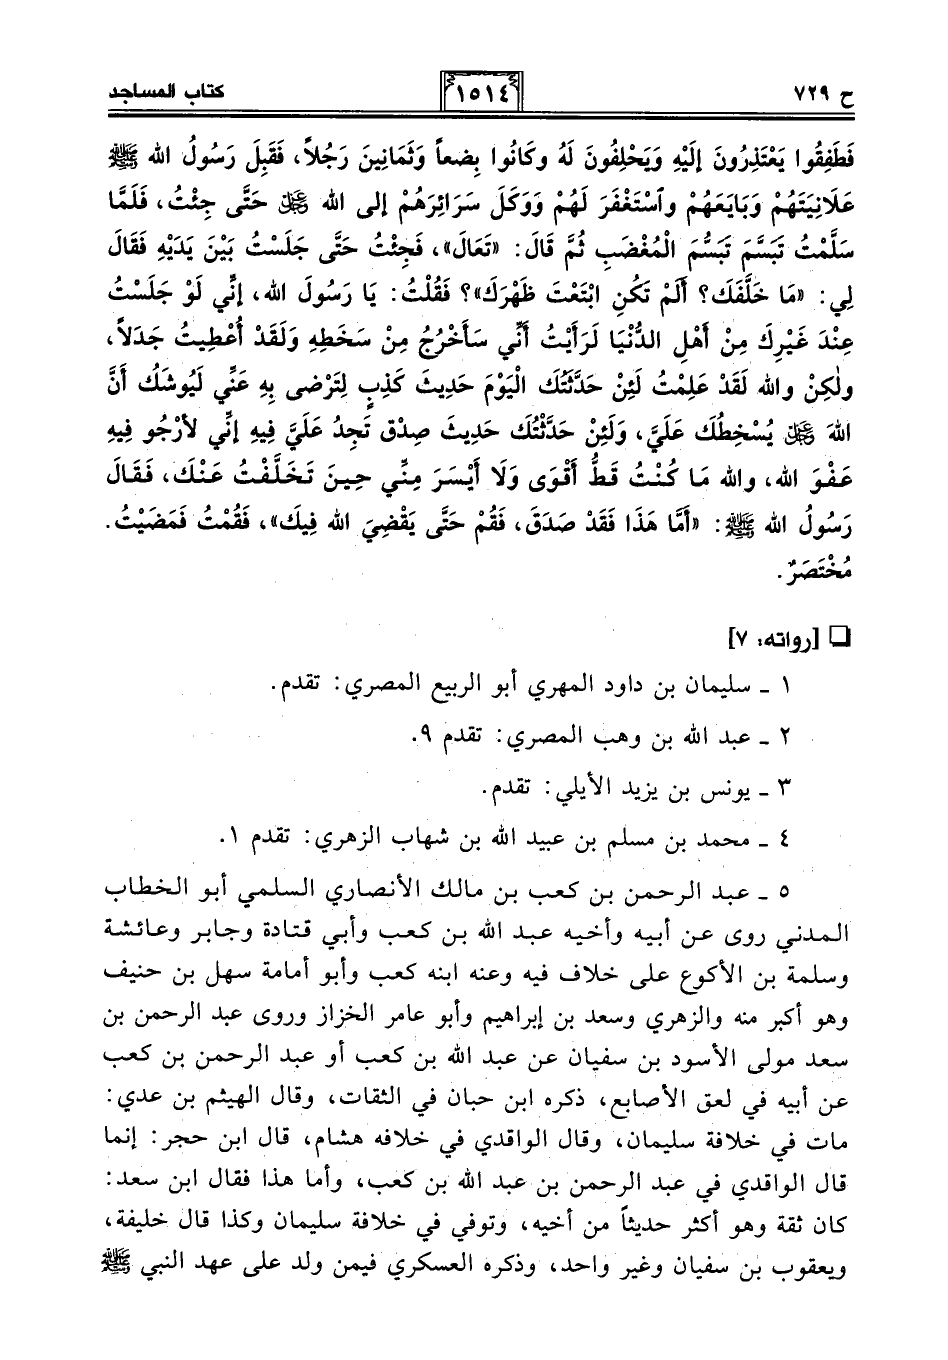 ح ٧٢٩ ١٥١٤ كتاب المساجد
فَطَفِقُوا يَعْتَذِرُونَ إِلَيْهِ وَيَحْلِفُونَ لَهُ وكَانُوا بِضعاً وَثَمَانِينَ رَجُلاً، فَقَبِلَ رَسُولُ الله ﷺ
عَلَانِيَتَهُمْ وَبَايَعَهُمْ واَسْتَغْفَرَ لَهُمْ وَوَكَلَ سَرَائِرَهُمْ إلى الله ﷿ حَتَّى جِئْتُ، فَلَمَّا
سَلَّمْتُ تَبَسَّمَ تَبَسُّمَ الْمُغْضَبِ ثُمَّ قَالَ: «تَعَالَ»، فَجِئْتُ حَتَّى جَلَسْتُ بَيْنَ يَدَيْهِ فَقَالَ
لِي: «مَا خَلَّفَكَ؟ أَلَمْ تَكُنِ ابْتَعْتَ ظَهْرَكَ»؟ فَقُلْتُ: يَا رَسُولَ الله، إِنِّي لَوْ جَلَسْتُ
عِنْدَ غَيْرِكَ مِنْ أَهْلِ الدُّنْيَا لَرَأَيْتُ أَنِّي سَأَخْرُجُ مِنْ سَخَطِهِ وَلَقَدْ أُعْطِيتُ جَدَلاً،
ولٰكِنْ والله لَقَدْ عَلِمْتُ لَئِنْ حَدَّثْتُكَ الْيَوْمَ حَدِيثَ كَذِبٍ لِتَرْضى بِهِ عَنِّي لَيُوشَكُ أَنَّ
اللهَ ﷿ يُسْخِطُكَ عَلَيَّ، وَلَئِنْ حَدَّثْتُكَ حَدِيثَ صِدْقٍ تَجِدُ عَلَيَّ فِيهِ إِنِّي لأَرْجُو فِيهِ
عَفْوَ الله، والله مَا كُنْتُ قَطُّ أَقْوَى وَلَا أَيْسَرَ مِنِّي حِينَ تَخَلَّفْتُ عَنْكَ، فَقَالَ
رَسُولُ الله ﷺ: «أَمَّا هَذَا فَقَدْ صَدَقَ، فَقُمْ حَتَّى يَقْضِيَ الله فِيكَ»، فَقُمْتُ فَمَضَيْتُ.
مُخْتَصَرٌ.
❏ [رواته: ٧]
١ ـ سليمان بن داود المهري أبو الربيع المصري: تقدم.
٢ ـ عبد الله بن وهب المصري: تقدم ٩.
٣ ـ يونس بن يزيد الأيلي: تقدم.
٤ ـ محمد بن مسلم بن عبيد الله بن شهاب الزهري: تقدم ١.
٥ ـ عبد الرحمن بن كعب بن مالك الأنصاري السلمي أبو الخطاب
المدني روى عن أبيه وأخيه عبد الله بن كعب وأبي قتادة وجابر وعائشة
وسلمة بن الأكوع على خلاف فيه وعنه ابنه كعب وأبو أمامة سهل بن حنيف
وهو أكبر منه والزهري وسعد بن إبراهيم وأبو عامر الخزاز وروى عبد الرحمن بن
سعد مولى الأسود بن سفيان عن عبد الله بن كعب أو عبد الرحمن بن كعب
عن أبيه في لعق الأصابع، ذكره ابن حبان في الثقات، وقال الهيثم بن عدي:
مات في خلافة سليمان، وقال الواقدي في خلافه هشام، قال ابن حجر: إنما
قال الواقدي في عبد الرحمن بن عبد الله بن كعب، وأما هذا فقال ابن سعد:
كان ثقة وهو أكثر حديثاً من أخيه، وتوفي في خلافة سليمان وكذا قال خليفة،
ويعقوب بن سفيان وغير واحد، وذكره العسكري فيمن ولد على عهد النبي ﷺ